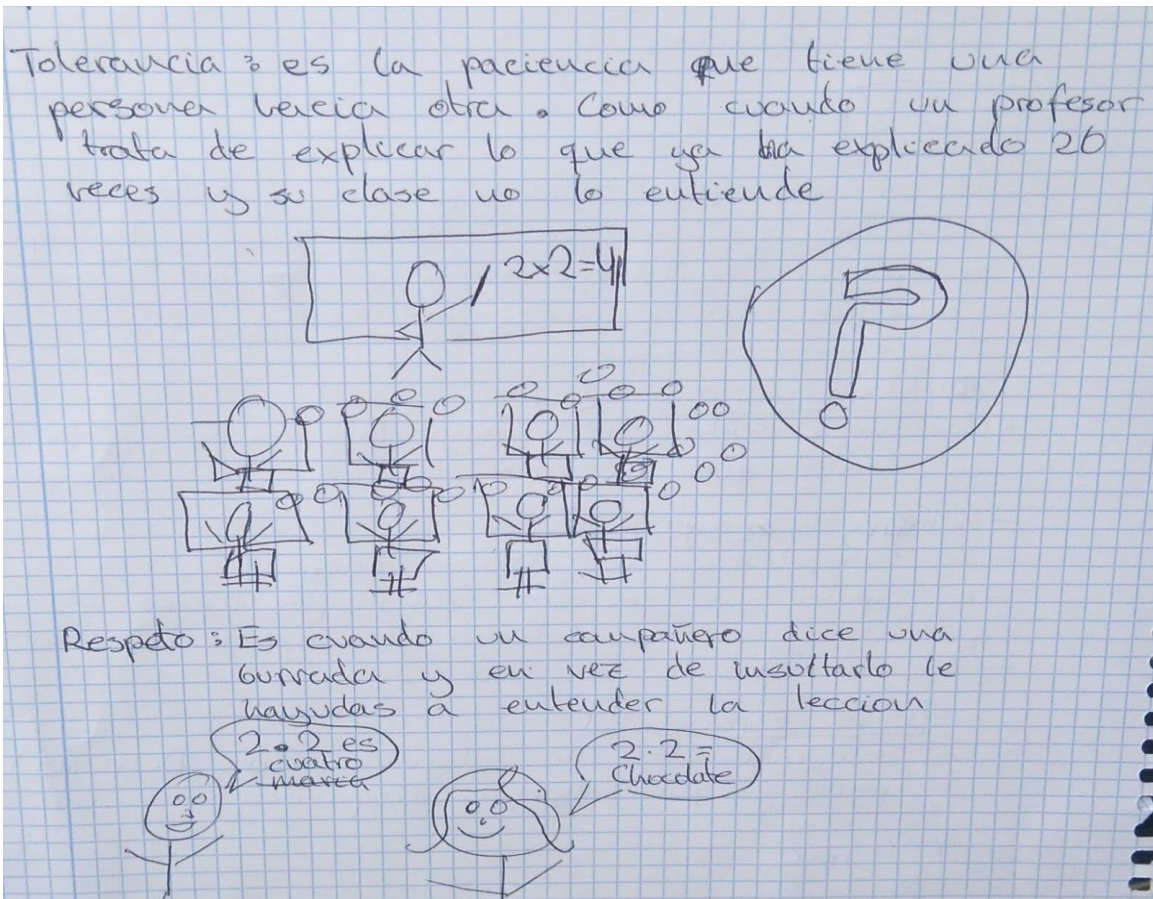 Tolerancia: es la paciencia que tiene una
persona hacia otra. Como cuando un profesor
trata de explicar lo que ya ha explicado 20
veces y su clase no lo entiende
2x2=4
?
Respeto: Es cuando un compañero dice una
burrada y en vez de insultarlo le
hayudas a entender la leccion
2.2 es
cuatro
2.2=
Chocolate